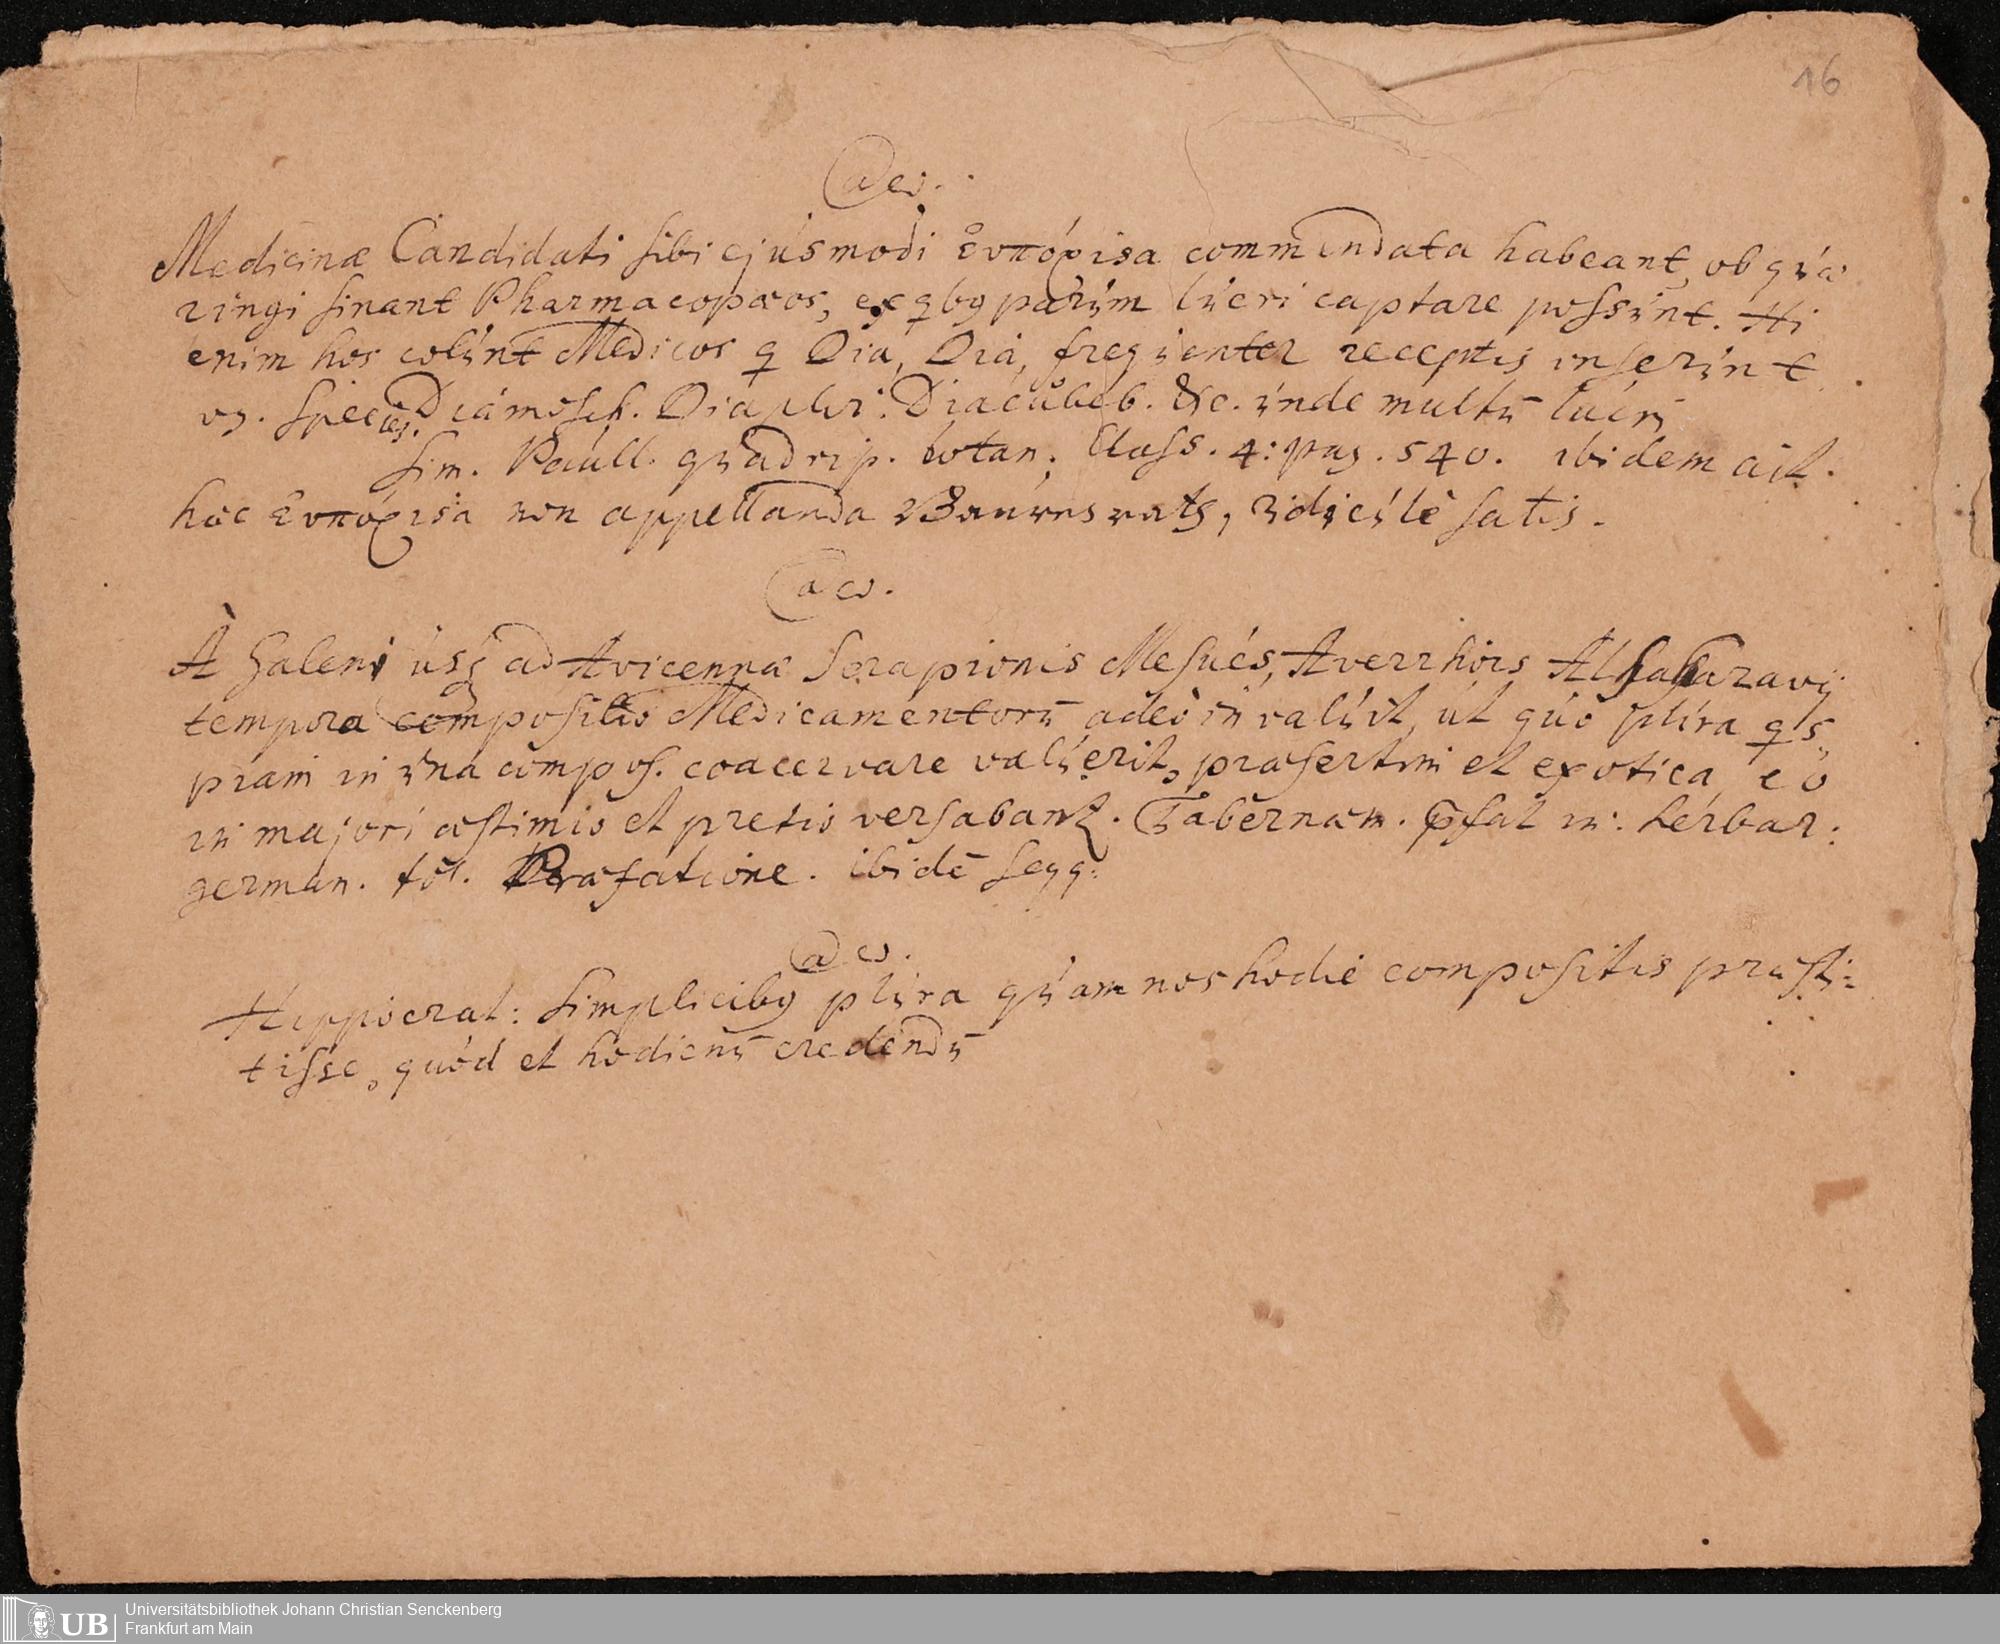 16
Medicinæ Candidati sibi ejusmodi Εὐπόριϛα commendata habeant, ob quæ
ringi sinant Pharmacopæos, ex qbꝰ parùm lucri captare possunt. Hi
enim hos colunt Medicos q Dia, Dia, frequenter receptis inserunt
vg. species Diamosch. Diaplir. Diacubeb. &c. unde multū lucri
Sim. Paull. quadrip. botan. Class. 4: pag. 540. ibidem ait.
hæc Εὐπόριϛα non appellanda ridiculè satis.
A Galeni usq ad Avicennæ Serapionis Mesués, Averrhois Alsaharavij
tempora compositio Medicamentorū adeò invaluit, ut quò plura qs,
piam in una compos. coacervare valuerit, præsertim et exotica, eò
in majori æstimio et pretio versabant. Tabernæm. in herbar:
german. Præfatione. ibidē seqq:
Hippocrat: simplicibꝰ plura quam nos hodie compositis præsti:
tisse, quòd et hodienū credendū
Universitätsbibliothek Johann Christian Senckenberg
UB Frankfurt am Main